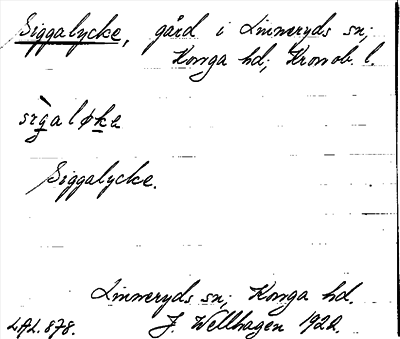 Siggalycke, gård i Linneryds sn;
Konga hd; Kronob. l.
sìgaløke
Siggalycke.
Linneryds sn; Konga hd.
LAL. 878. J. Wellhagen 1922.